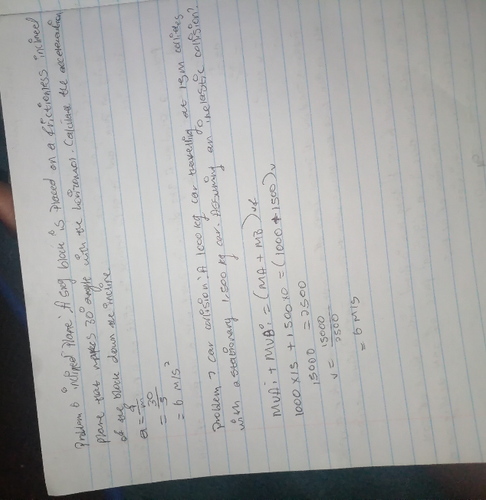 Problem 6 inclined plane: A 5kg block is placed on a frictionless inclined
plane that makes 30° angle with the horizontal. Calculate the acceleration
of the block down the incline
a = F/m
= 30/5
= 6 m/s²
Problem 7 car collision: A 1000 kg car traveling at 15m collides
with a stationary 1,500 kg car. Assuming an inelastic collision?
MVAi + MVBi = (MA + MB) vf
1000 x 15 + 1500 x 0 = (1000 + 1500) v
15000 = 2500
v = 15000/2500
= 6 m/s